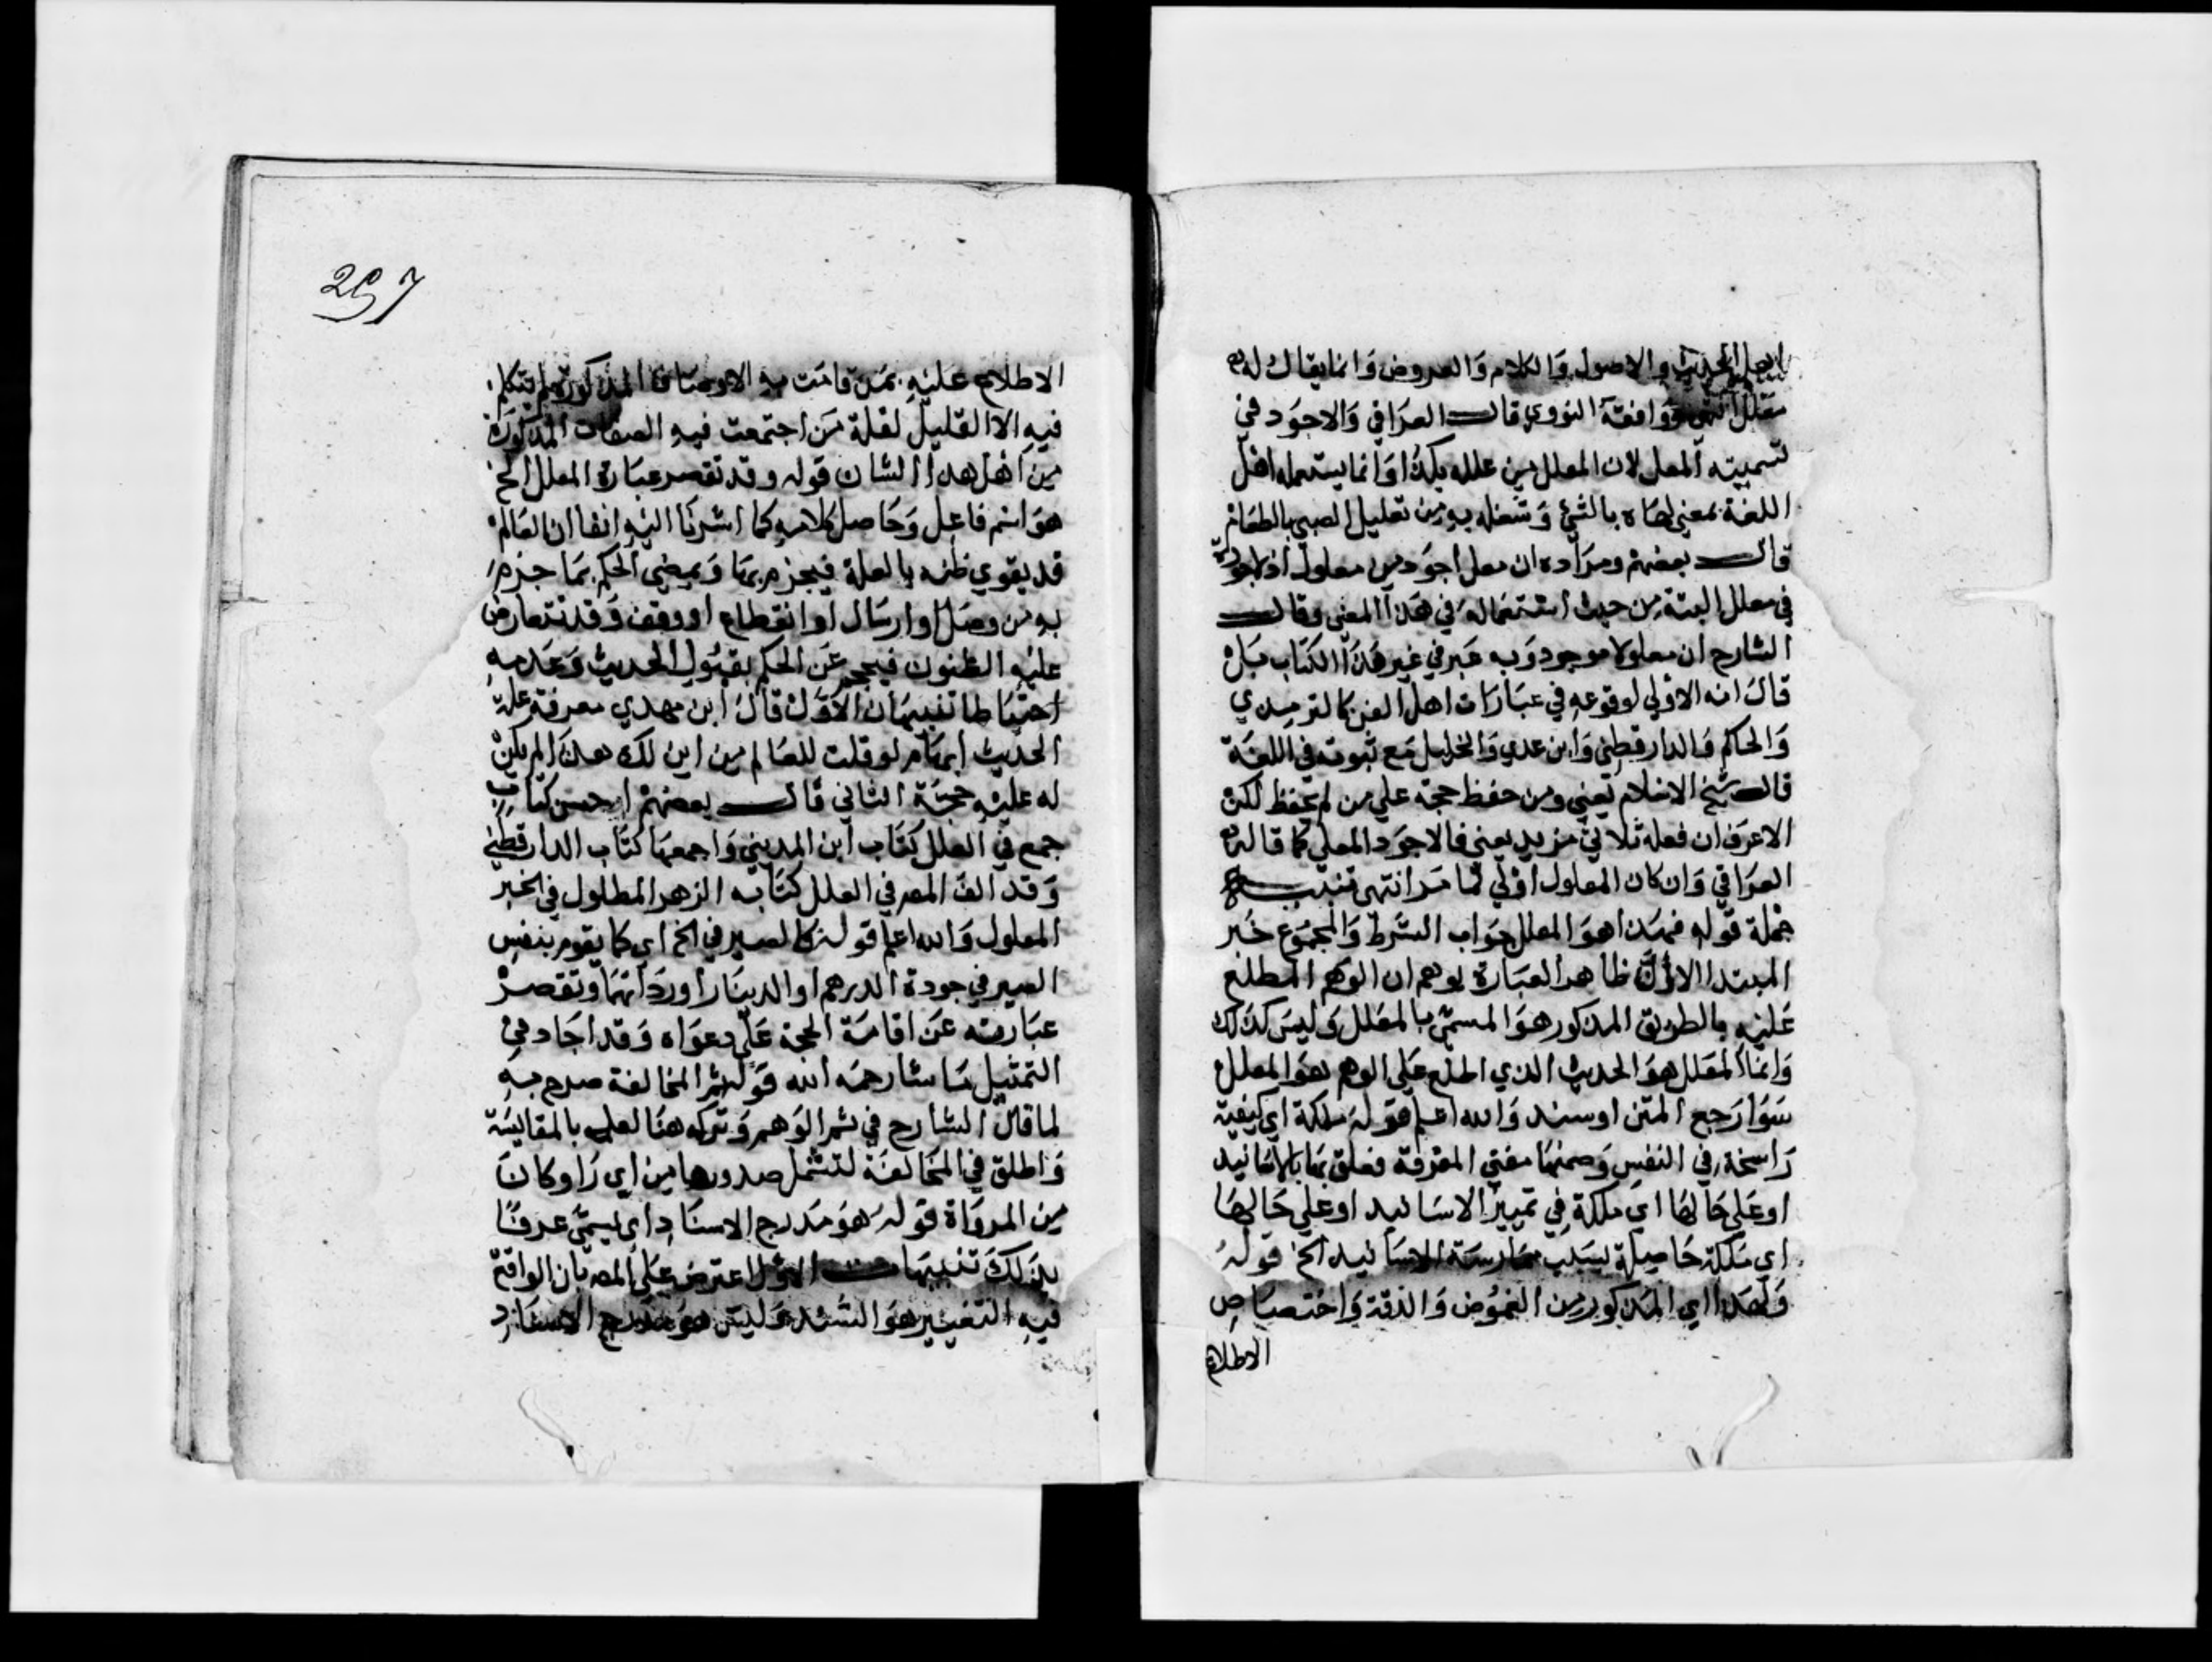 اهل الحديث والاصول والكلام والعروض وانما يقال له
معلل انتهى ووافقه النووي قال العراقي والاجود في
تسميته المعل لان المعلل من علله بكذا وانما يستعمله اهل
اللغة بمعنى لهاه بالشئ وشغله به من تعليل الصبي بالطعام
قال بعضهم ومراده ان معل اجود من معلول اذ لا جودة
في معلل البتة من حيث استعماله في هذا المعنى وقال
الشارح ان معلولا موجود وبه عبر في غير هذا الكتاب بل
قال انه الاولي لوقوعه في عبارات اهل الفن كالترمذي
والحاكم والدارقطني وابن عدي والخليل مع ثبوته في اللغة
قال شيخ الاسلام يعني ومن حفظ حجة علي من لم يحفظ لكن
الاعرف ان فعله ثلاثي مزيد يعني فالاجود المعل كما قاله
العراقي وان كان المعلول اولي مما مر انتهى تنبيه
جملة قوله فهذا هو المعلل جواب الشرط والمجموع خبر
المبتدا الاول ظاهر العبارة يوهم ان الوهم المطلع
عليه بالطريق المذكور هو المسمى بالمعلل وليس كذلك
وانما المعلل هو الحديث الذي اطلع على الوهم هو المعلل
سوا رجع المتن او سند والله اعلم قوله ملكة اي كيفية
راسخة في النفس وضمنها معني المعرفة فعلق بها بالاسانيد
او علي حالها اي ملكة في تمييز الاسانيد او علي حالها
اي ملكة حاصلة بسبب ممارسة الاسانيد الخ قوله
ولهذا اي المذكور من الغموض والدقة واختصاص
الاطلاع
297
الاطلاع عليه بمن قامت به الاوصاف المذكورة لم يتكلم
فيه الا القليل لقلة من اجتمعت فيه الصفات المذكورة
من اهل هذا الشان قوله وقد تقصر عبارة المعلل الخ
هو اسم فاعل وحاصل كلامه كما اشرنا اليه انفا ان العالم
قد يقوي ظنه بالعلة فيجزم بها ويمضي الحكم بما جزم
به من وصل او ارسال او انقطاع او وقف وقد تتعارض
عليه الظنون فيحجم عن الحكم بقبول الحديث وعدمه
احتياطا تنبيهان الاول قال ابن مهدي معرفة علة
الحديث الهام لو قلت للعالم من اين لك هذا لم يكن
له عليه حجة الثاني قال بعضهم احسن كتاب
جمع في العلل كتاب ابن المديني واجمعها كتاب الدارقطني
وقد الف المص في العلل كتابه الزهر المطلول في الخبر
المعلول والله اعلم قوله كالصير في الخ اي كما يقوم بنفس
الصير في جودة الدرهم او الدينار او رداتهما وتقصر
عبارته عن اقامة الحجة على دعواه وقد اجاد في
التمثيل ما شا رحمه الله قوله ثم المخالفة صرح به
لما قال الشارح في ثم الوهم وتركه هنا لعله بالمقايسة
واطلق في المخالفة لتشمل صدورها من اي راو كان
من الرواة قوله هو مدرج الاسناد اي يسمى عرفا
بذلك تنبيهات الاول اعترض على المص بان الواقع
فيه التغيير هو السند وليس هو مدرج الاسناد